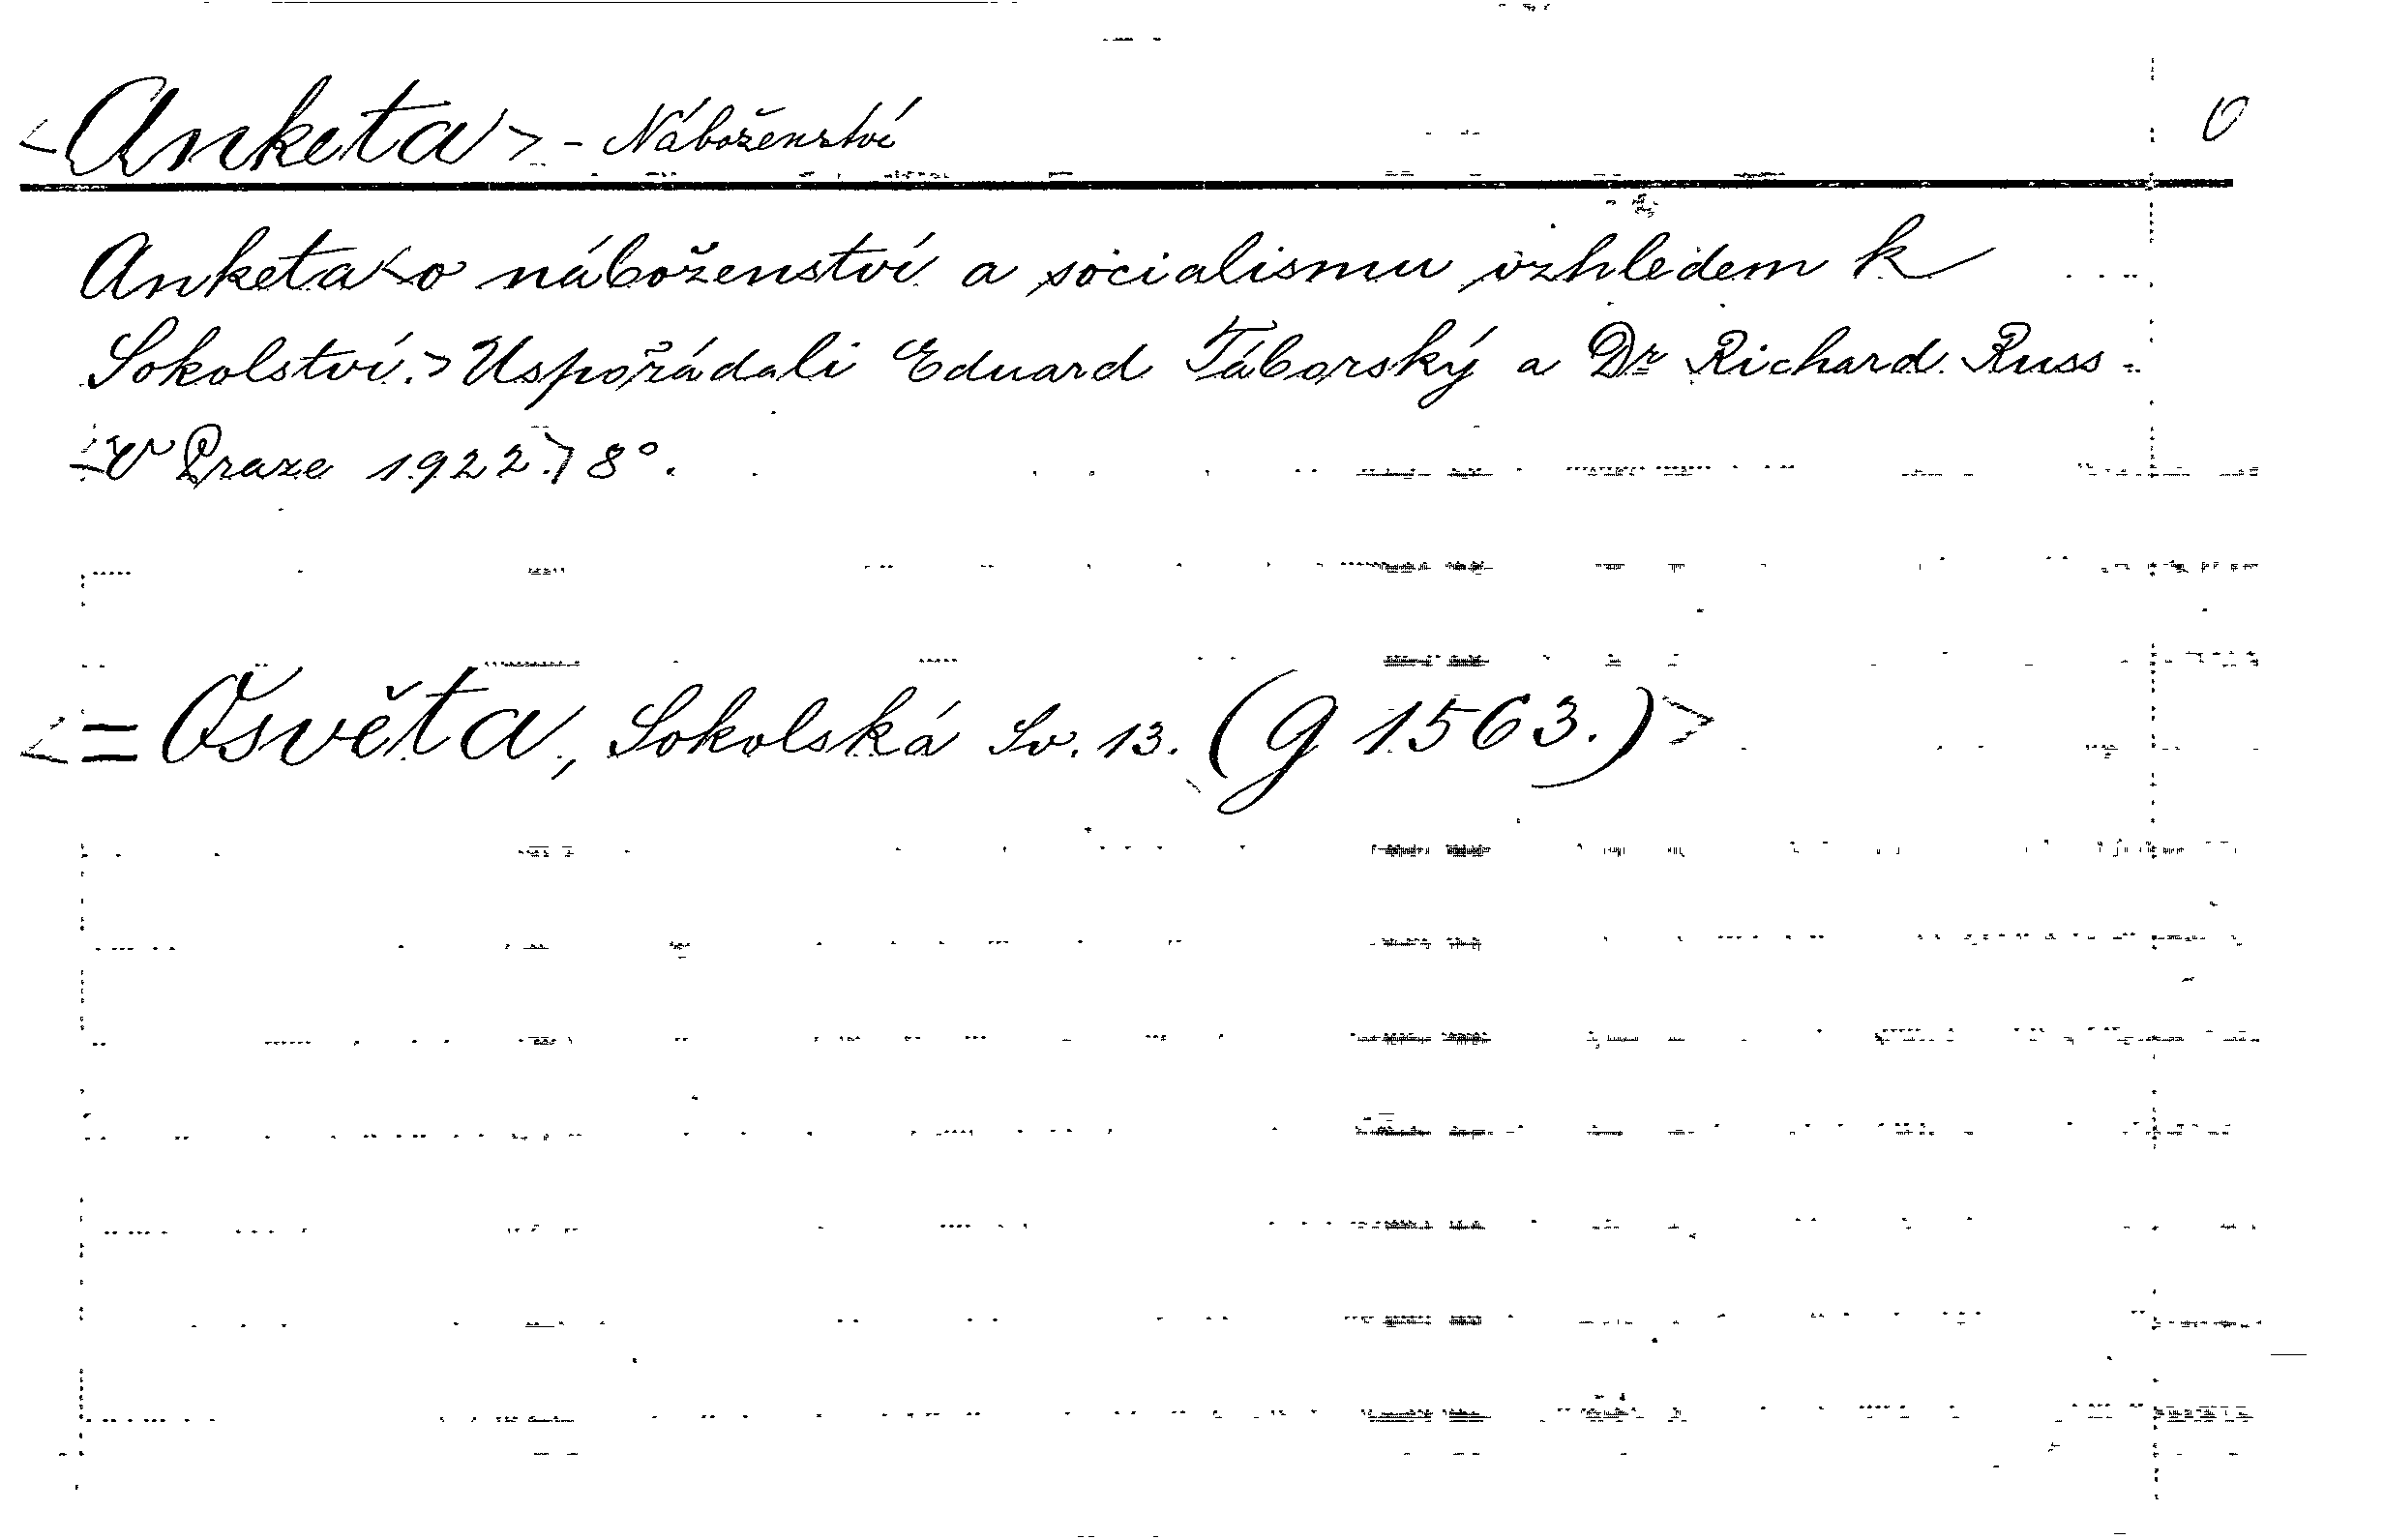 <Anketa> - Náboženství 0
Anketa <o náboženství a socialismu vzhledem k
Sokolství.> Uspořádali Eduard Táborský a Dr Richard Russ -
<V Praze 1922.> 8°.
<= Osvěta, Sokolská Sv. 13. (g 1563.)>